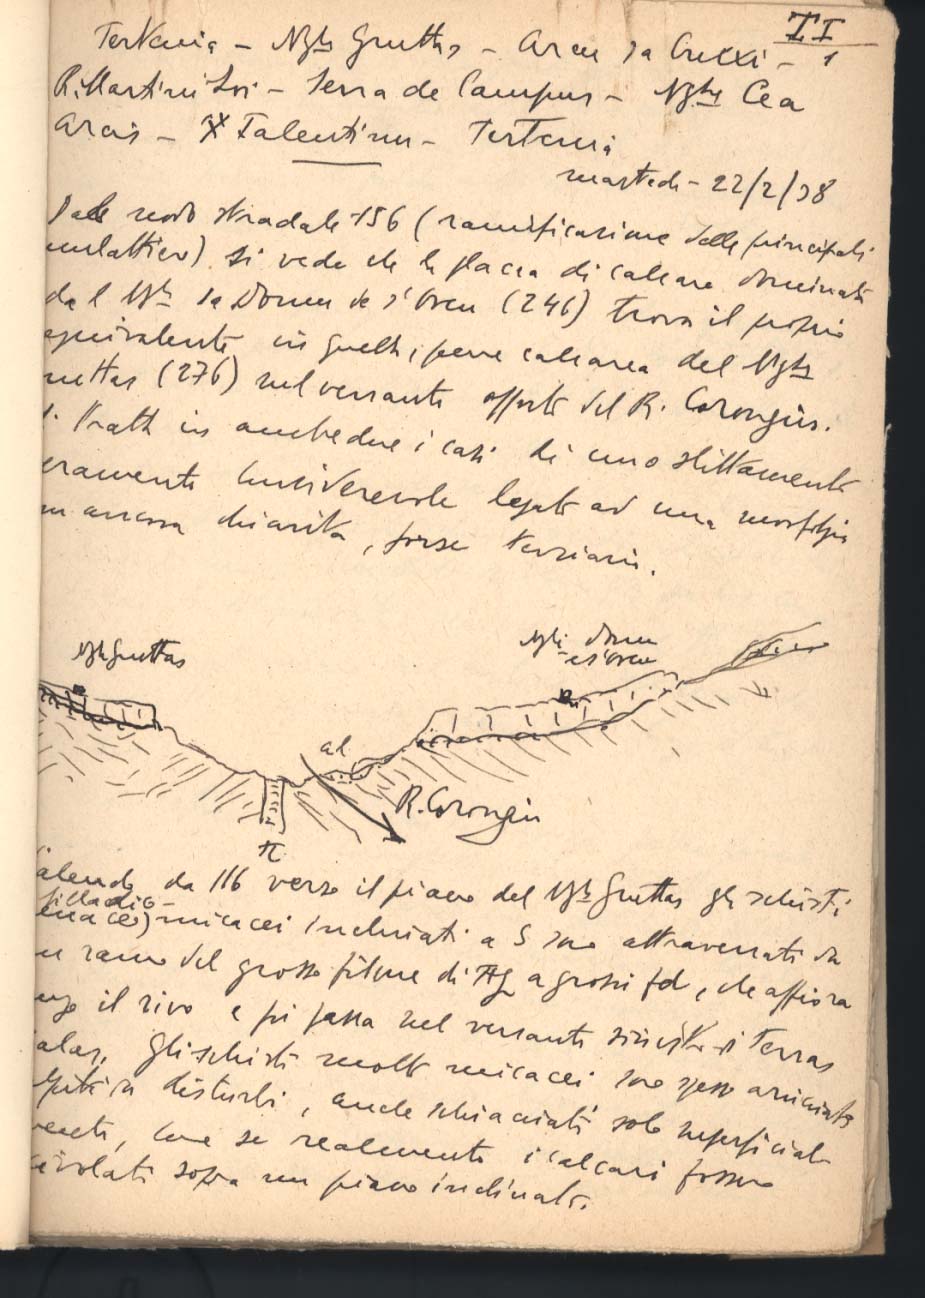 II
Tertenia - Nghe Gruttas - Arcu sa Cruxi - 1
R. Martini Loi - Serra de Campus - Nghe Cea
Arcis - X Talentinu - Tertenia
martedi - 22/2/38
Dal nodo stradale 156 (ramificazione delle principali
mulattiere) si vede che la placca di calcare dominata
dal Nghe sa Domu de s'Orcu (246) trova il proprio
equivalente in quella, pure calcarea del Nghe
uttas (276) nel versante opposto del R. Corongiu.
i tratta in ambedue i casi di uno slittamento
eramente considerevole legato ad una morfologia
on ancora chiarita, forse terziaria.
Nghe Gruttas
Nghe Domu
es'Orcu
al
R. Corongiu
π
alendo da 116 verso il piano del Nghe Gruttas gli schisti
filladico-
enacei) micacei inclinati a S sono attraversati da
un ramo del grosso filone di a grossi fd, che affiora
ungo il rivo e poi passa nel versante sinistro di Terras
alas. Gli schisti molto micacei sono spesso
disturbi, anche schiacciati solo superficial
mente, come se realmente i calcari fossero
civolati sopra un piano inclinato.